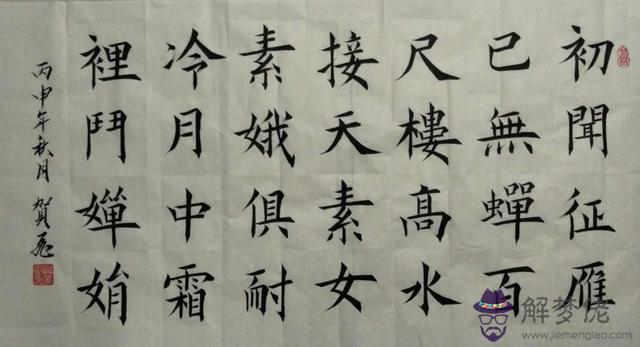 初聞征雁
已無蟬百
尺樓高水
接天素女
素娥俱耐
冷月中霜
裡鬥嬋娟
丙申年秋月 賀
解梦佬
www.jiemenglao.com